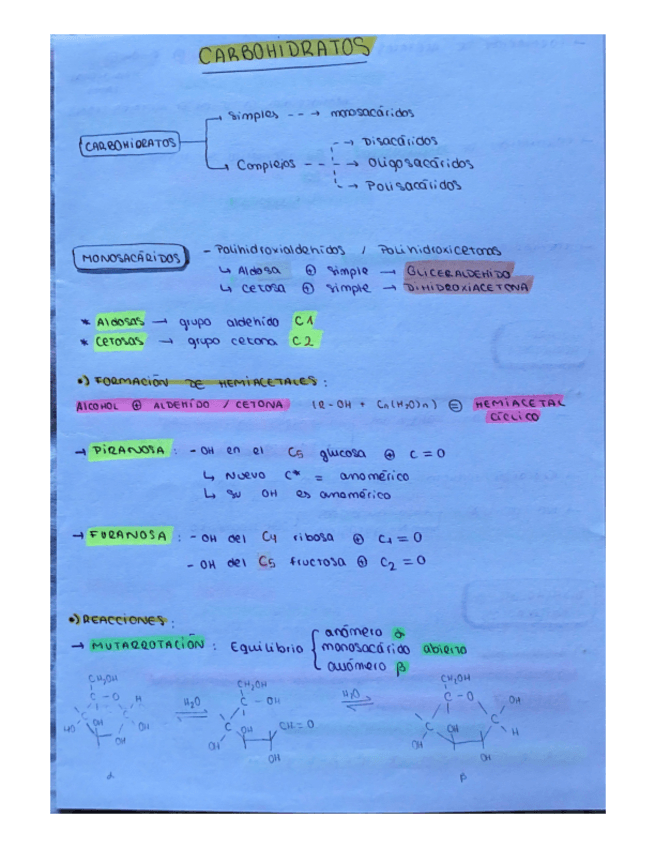 CARBOHIDRATOS
Simples --→ monosacáridos
CARBOHIDRATOS
→ Disacáridos
Complejos --→ Oligosacáridos
→ Polisacáridos
MONOSACÁRIDOS - Polihidroxialdehidos / Polihidroxicetonas
↳ Aldosa ⊕ simple → GLICERALDEHIDO
↳ Cetosa ⊕ simple → DIHIDROXIACETONA
* Aldosas → grupo aldehido C1
* Cetosas → grupo cetona C2
•) FORMACIÓN DE HEMIACETALES:
ALCOHOL ⊕ ALDEHÍDO / CETONA (R-OH + Cn(H2O)n) ⊜ HEMIACETAL
CÍCLICO
→ PIRANOSA: -OH en el C5 glucosa ⊕ C=O
↳ Nuevo C* = anomérico
↳ su OH es anomérico
→ FURANOSA: -OH del C4 ribosa ⊕ C1=O
-OH del C5 fructosa ⊕ C2=O
•) REACCIONES:
anómero α
→ MUTARROTACIÓN: Equilibrio { monosacárido abierto
anómero β
CH2OH CH2OH CH2OH
C-O H H2O C-OH H2O C-O OH
C OH C C OH CH=O C OH C
HO OH OH OH H
OH OH OH
α β